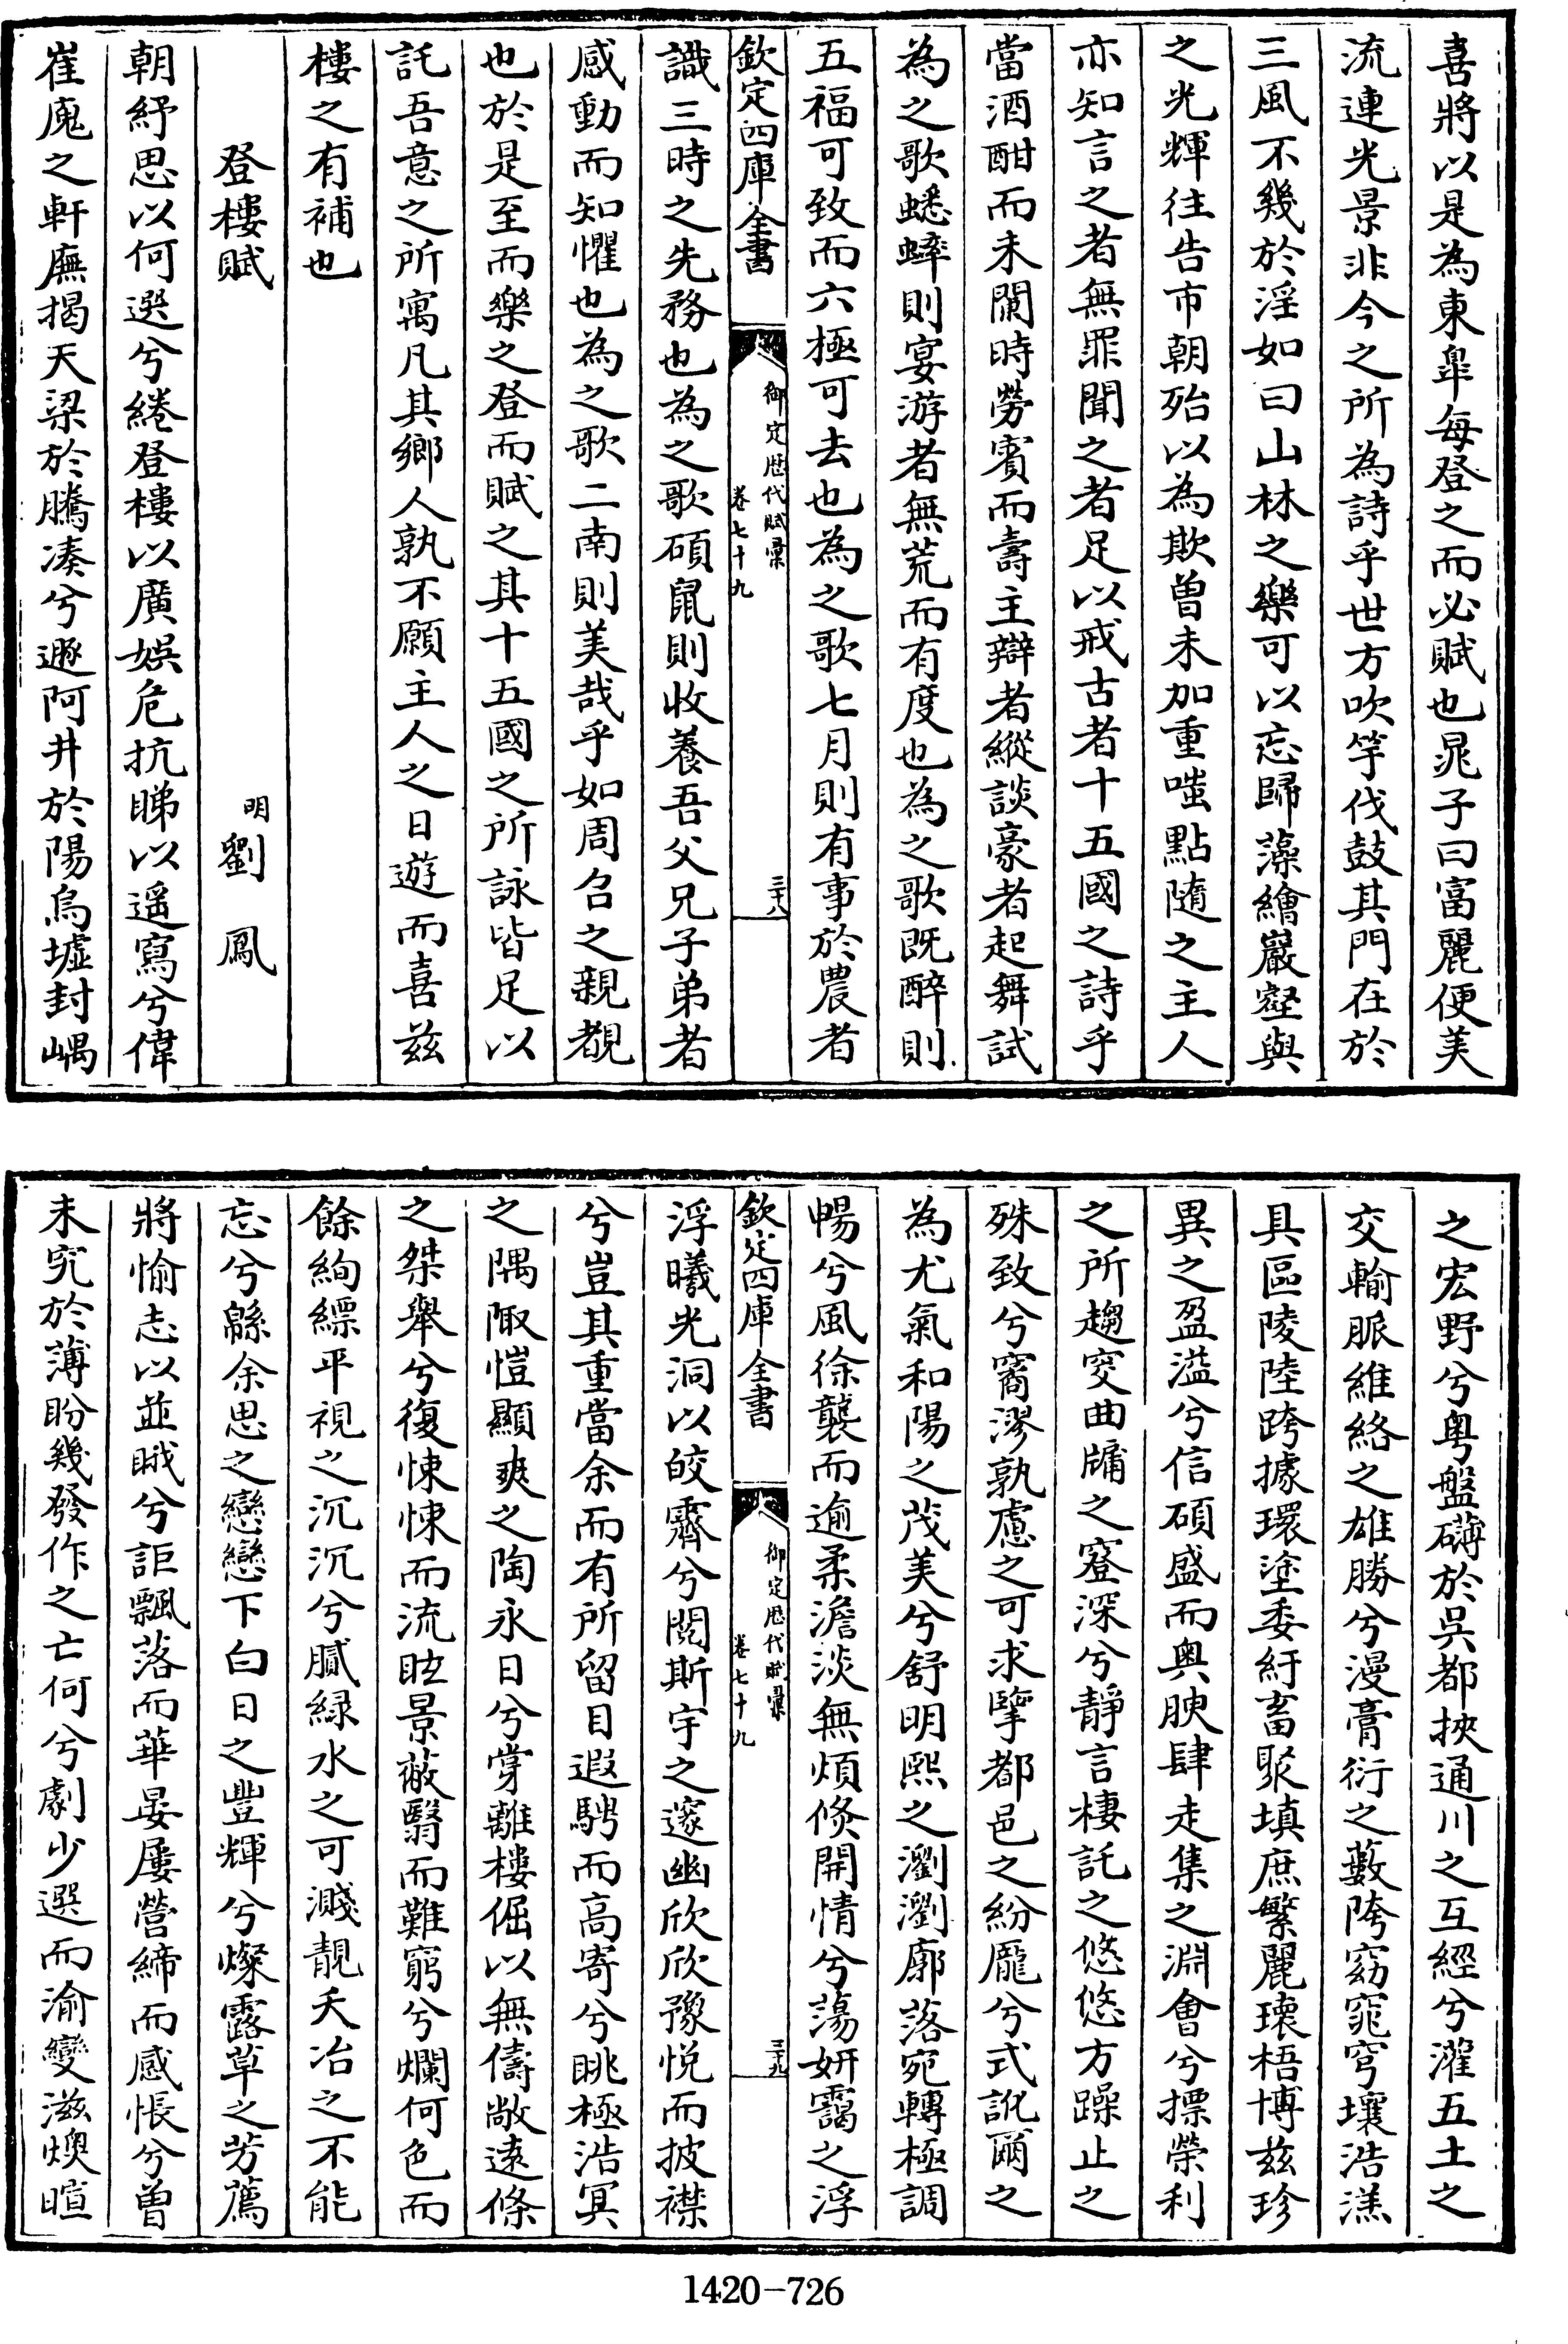 喜將以是為東臯每登之而必賦也晁子曰富麗便美
流連光景非今之所為詩乎世方吹竽伐鼓其門在於
三風不幾於淫如曰山林之樂可以忘歸藻繪巖壑與
之光輝往告市朝殆以為欺曽未加重嗤點隨之主人
亦知言之者無罪聞之者足以戒古者十五國之詩乎
當酒酣而未闌時勞賓而壽主辯者縱談豪者起舞試
為之歌蟋蟀則宴游者無荒而有度也為之歌既醉則
五福可致而六極可去也為之歌七月則有事於農者
欽定四庫全書
御定歴代賦彙
卷七十九
三十八
識三時之先務也為之歌碩鼠則收養吾父兄子弟者
感動而知懼也為之歌二南則美哉乎如周召之親覩
也於是至而樂之登而賦之其十五國之所詠皆足以
託吾意之所寓凡其鄉人孰不願主人之日遊而喜兹
樓之有補也
登樓賦
明劉鳳
朝紓思以何選兮綣登樓以廣娛危抗睇以遥寫兮偉
崔嵬之軒廡揭天梁於騰湊兮遯阿井於陽烏墟封嵎
之宏野兮粤盤礴於呉都挾通川之互經兮濯五土之
交輸脈維絡之雄勝兮漫膏衍之藪陓窈窕穹壤浩溔
具區陵陸跨據環塗委紆畜聚填庶繁麗瓌梧博兹珍
異之盈溢兮信碩盛而奥腴肆走集之淵會兮摽榮利
之所趨窔曲牖之窒深兮靜言棲託之悠悠方躁止之
殊致兮窩漻孰慮之可求孽都邑之紛厖兮式訛爾之
為尤氣和陽之茂美兮舒明熙之瀏瀏廓落宛轉極調
暢兮風徐襲而逾柔澹淡無煩倏開情兮蕩妍靄之浮
欽定四庫全書
御定歴代賦彙
卷七十九
三十九
浮曦光洞以皎霽兮閲斯宇之邃幽欣欣豫悦而披襟
兮豈其重當余而有所留目遐騁而高寄兮眺極浩冥
之隅陬愷顯爽之陶永日兮甯離樓倔以無儔敞逺條
之桀舉兮復悚悚而流眩景蔽翳而難窮兮爛何色而
餘絢縹平視之沉沉兮膩緑水之可濺靚夭冶之不能
忘兮緜余思之戀戀下白日之豐輝兮燦露草之芳薦
將愉志以並睋兮詎飄落而華晏屢營締而感悵兮曽
未究於薄盼幾發作之亡何兮劇少選而渝變滋燠暄
1420-726